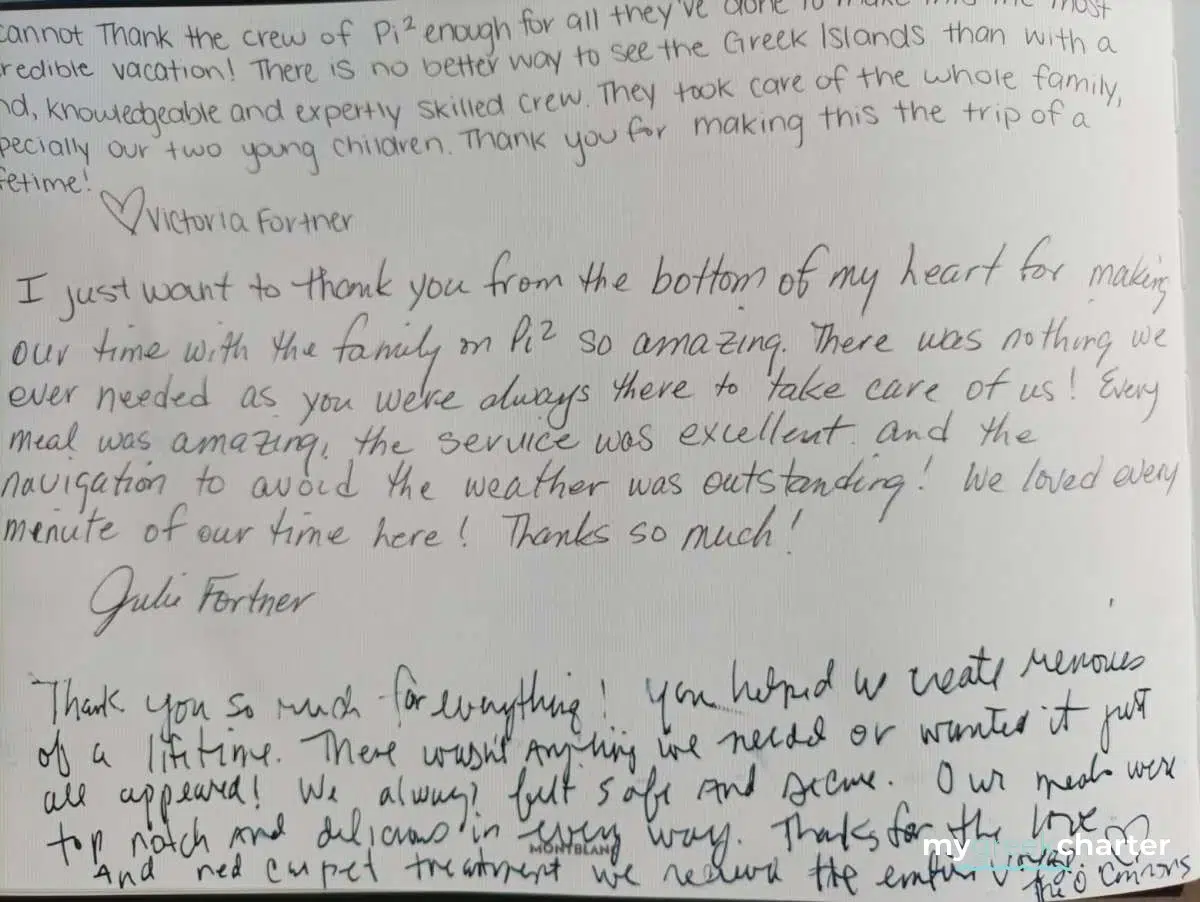 cannot Thank the crew of Pi² enough for all they've done to make this the most
redible vacation! There is no better way to see the Greek Islands than with a
nd, knowledgeable and expertly skilled crew. They took care of the whole family,
pecially our two young children. Thank you for making this the trip of a
fetime!
♡ Victoria Fortner
I just want to thank you from the bottom of my heart for making
our time with the family on Pi² so amazing. There was nothing we
ever needed as you were always there to take care of us! Every
meal was amazing, the service was excellent and the
navigation to avoid the weather was outstanding! We loved every
minute of our time here! Thanks so much!
Julie Fortner
Thank you so much for everything! You helped us create memories
of a lifetime. There wasn't anything we needed or wanted it just
all appeared! We always felt safe and secure. Our meals were
top notch and delicious in every way. Thanks for the love
MONTBLANC
mygreekcharter
And red carpet treatment we received the entire voyage. ♡
The O'Connors